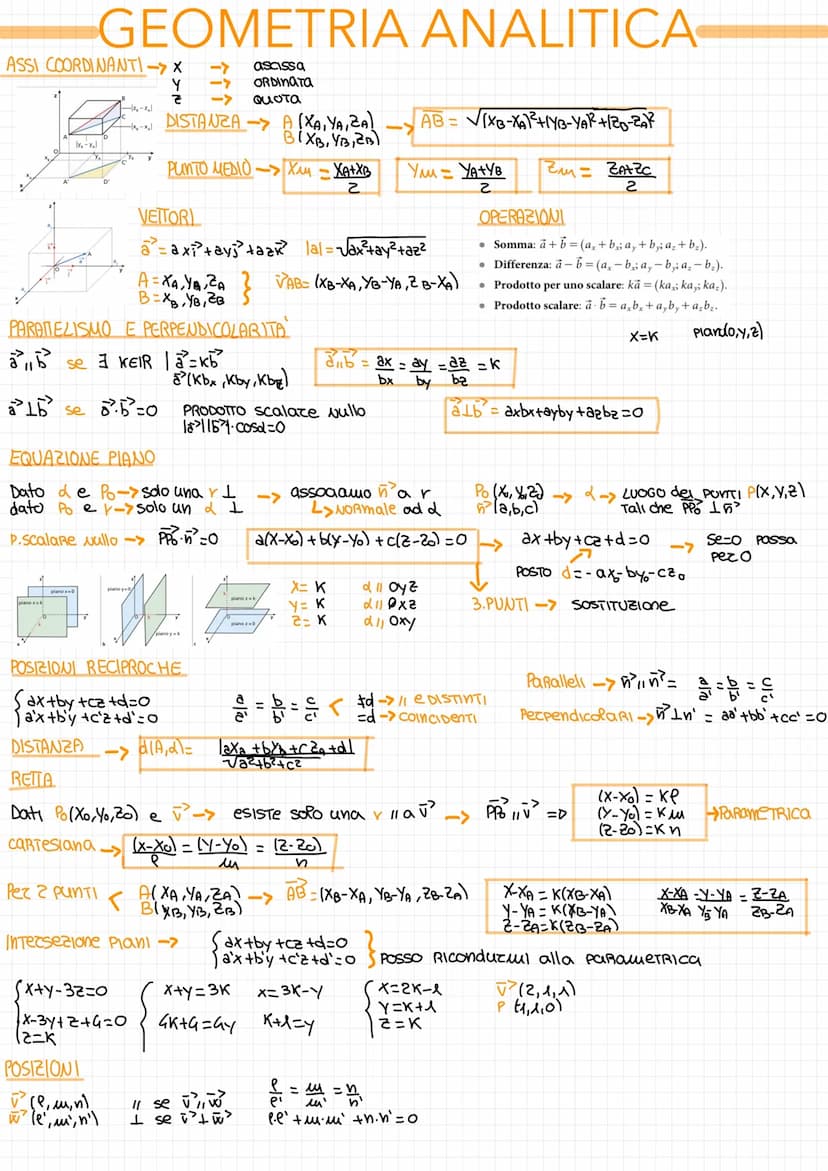 GEOMETRIA ANALITICA
ASSI COORDINANTI → X → ascissa
Y → ORDINATA
Z → QUOTA
DISTANZA → A (XA, YA, ZA) → AB = √(XB-XA)²+(YB-YA)²+(ZB-ZA)²
B (XB, YB, ZB)
PUNTO MEDIO → XM = XA+XB/2 YM = YA+YB/2 ZM = ZA+ZC/2
VETTORI
a = axi + ayj + azk |a| = √ax²+ay²+az²
A = XA, YA, ZA } VAB = (XB-XA, YB-YA, ZB-XA)
B = XB, YB, ZB
OPERAZIONI
• Somma: a + b = (ax + bx; ay + by; az + bz).
• Differenza: a − b = (ax − bx; ay − by; az − bz).
• Prodotto per uno scalare: ka = (kax; kay; kaz).
• Prodotto scalare: a · b = axbx + ayby + azbz.
PARALLELISMO E PERPENDICOLARITA'
X=K PIANO(O,Y,Z)
a // b se ∃ K∈IR | a = kb
a (Kbx, Kby, Kbz)
a // b = ax/bx = ay/by = az/bz = K
a ⊥ b se a · b = 0 PRODOTTO scalare nullo
|a||b| · cosα = 0
a ⊥ b = axbx+ayby+azbz = 0
EQUAZIONE PIANO
Dato α e P0 → solo una r ⊥ → associamo n a r P0 (X0, Y0, Z0) → α → LUOGO dei PUNTI P(X,Y,Z)
dato P0 e r → solo un α ⊥ ↳ NORMALE ad α n (a,b,c) Tali che PP0 ⊥ n
P.scalare nullo → PP0 · n = 0 a(X-X0) + b(Y-Y0) + c(Z-Z0) = 0 → ax+by+cz+d=0 → Se=0 Passa
per O
POSTO d = -ax0-by0-cz0
3.PUNTI → SOSTITUZIONE
piano x = 0
piano x = k
piano y = 0
piano y = k
piano z = k
piano z = 0
X = K α // OYZ
Y = K α // OXZ
Z = K α // OXY
POSIZIONI RECIPROCHE
{ ax+by+cz+d=0
a'x+b'y+c'z+d'=0
a/a' = b/b' = c/c' < ≠d → // e DISTINTI
=d → COINCIDENTI
Paralleli → n // n = a/a' = b/b' = c/c'
Perpendicolari → n ⊥ n' = aa'+bb'+cc' = 0
DISTANZA → d(A,α) = |aXA+bYA+cZA+d|/√a²+b²+c²
RETTA
Dati P0(X0,Y0,Z0) e v → esiste solo una r // a v → PP0 // v =D
(X-X0) = Kl
(Y-Y0) = Km
(Z-Z0) = Kn
→ PARAMETRICA
CARTESIANA → (X-X0)/l = (Y-Y0)/m = (Z-Z0)/n
Per 2 punti < A(XA,YA,ZA) → AB = (XB-XA, YB-YA, ZB-ZA)
B(XB,YB,ZB)
X-XA = K(XB-XA)
Y-YA = K(XB-YA)
Z-ZA = K(ZB-ZA)
X-XA/XB-XA = Y-YA/YB-YA = Z-ZA/ZB-ZA
Intersezione Piani → { ax+by+cz+d=0
a'x+b'y+c'z+d'=0 } POSSO Ricondurmi alla PARAMETRICA
{ X+Y-3Z=0
X-3Y+Z+4=0
Z=K
{ X+Y=3K X=3K-Y
4K+4=4Y K+1=Y
{ X=2K-1
Y=K+1
Z=K
v (2,1,1)
P (-1,1,0)
POSIZIONI
v (l,m,n) // se v // w l/l' = m/m' = n/n'
w (l',m',n') ⊥ se v ⊥ w l·l'+m·m'+n·n'=0